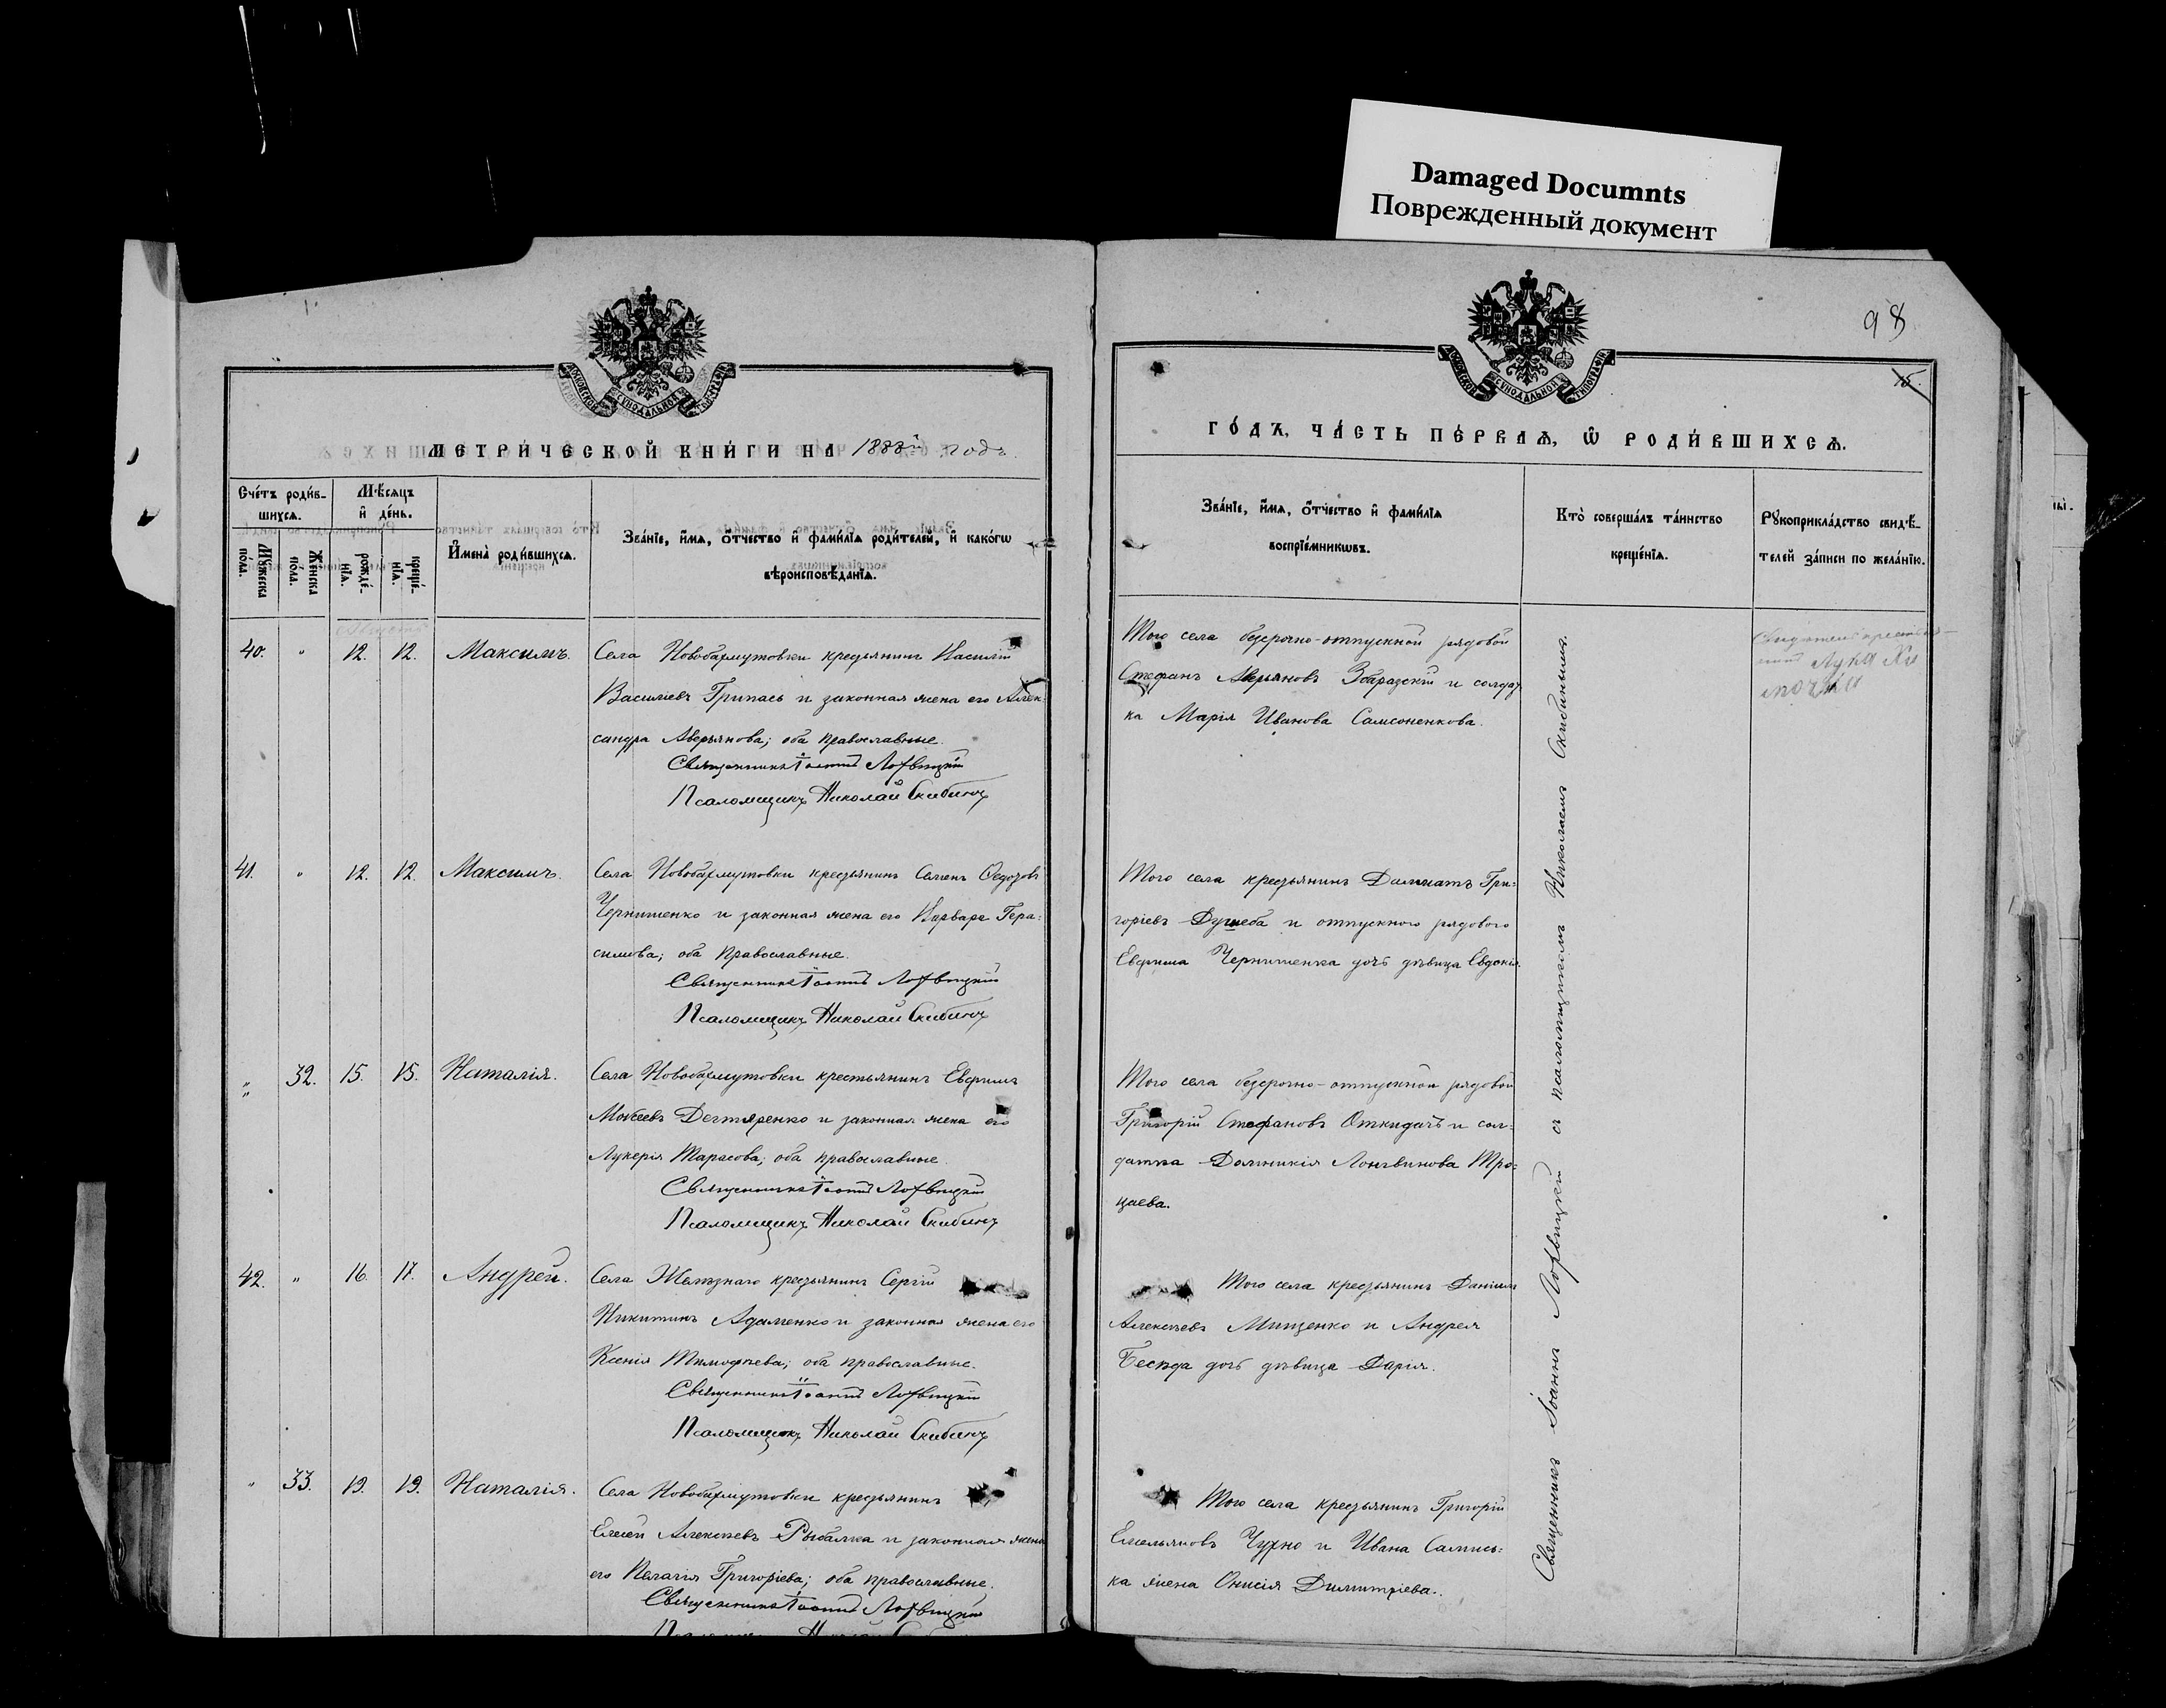 Damaged Documnts
Поврежденный документ
98
15.
МЕТРИЧЕСКОЙ КНИГИ НА 1888й годъ.
ГОДЪ, ЧАСТЬ ПЕРВАЯ, Ѡ РОДИВШИХСЯ.
Счетъ родив-
шихся.
Мѣсяцъ
и день.
Мужеска
пола.
Женска
пола.
рожде-
нія.
креще-
нія.
Имена родившихся.
Званіе, имя, отчество и фамилія родителей, и какогѡ
вѣроисповѣданія.
Званіе, имя, отчество и фамилія
воспріемникѡвъ.
Кто совершалъ таинство
крещенія.
Рукоприкладство свидѣ-
телей записи по желанію.
40. " 12. 12. Максимъ.
Села Новобахмутовки крестьянинъ Василій
Васильевъ Грипась и законная жена его Алек-
сандра Аверьянова; оба православные.
Священникъ Іоаннъ Лохвицкій
Псаломщикъ Николай Скибинъ
Того села безсрочно-отпускной рядовой
Стефанъ Аверьяновъ Збаразскій и солдат
ка Марія Иванова Самсоненкова.
Лука
41. " 12. 12. Максимъ.
Села Новобахмутовки крестьянинъ Семенъ Ѳедоровъ
Чернишенко и законная жена его Варвара Гера=
симова; оба православные.
Священникъ Іоаннъ Лохвицкій
Псаломщикъ Николай Скибинъ
Того села крестьянинъ Далматъ Гри=
горіевъ и отпускного рядового
Евфима Чернишенка дочь дѣвица Евдокія.
" 32. 15. 15. Наталія.
Села Новобахмутовки крестьянинъ Евфимъ
Мокеевъ Дегтяренко и законная жена его
Лукерія Тарасова; оба православные.
Священникъ Іоаннъ Лохвицкій
Псаломщикъ Николай Скибинъ
Того села безсрочно-отпускной рядовой
Григорій Стефановъ Откидачъ и сол=
датка Домникія Лонгвинова Тро=
цаева.
42. " 16. 17. Андрей.
Села Желѣзнаго крестьянинъ Сергій
Никитинъ Адаменко и законная жена его
Ксенія Тимофѣева; оба православные.
Священникъ Іоаннъ Лохвицкій
Псаломщикъ Николай Скибинъ
Того села крестьянинъ Даніилъ
Алексѣевъ Мищенко и Андрея
Бесѣда дочь дѣвица Дарія.
" 33. 19. 19. Наталія.
Села Новобахмутовки крестьянинъ
Елисей Алексѣевъ Рыбалка и законная жена
его Пелагія Григоріева; оба православные.
Священникъ Іоаннъ Лохвицкій
Того села крестьянинъ Григорій
Емельяновъ Чухно и Ивана
жена Онисія Димитріева.
Священникъ Іоаннъ Лохвицкій съ псаломщикомъ Николаемъ Скибинымъ.